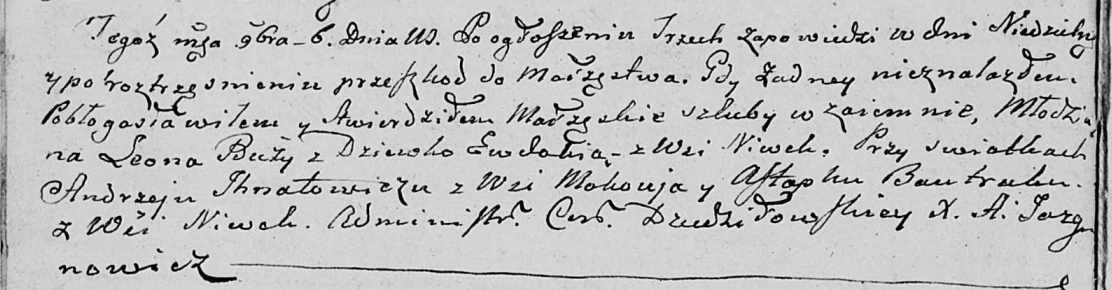 Tegoż mca 9bra - 6. Dnia US. Po ogłoszeniu Trzech zapowiedzi w dni Niedzielny
y po roztrząśnieniu przeszkod do Małżęstwa. Gdy żadney nieznalazłem.
Pobłogosławiłem y Stwierdziłem Małżęskie szluby wzaiemnie, Młodzia
na Leona Buży z Dziewko Ewdokią - z Wsi Niwek. Przy swiadkach
Andrzeju Ihnatowiczu z Wsi Mokouja y Astaphu Bautruku.
z Wsi Niwek. Administr. Cer. Dziedziłowskiey X. A. Jazgu
nowicz